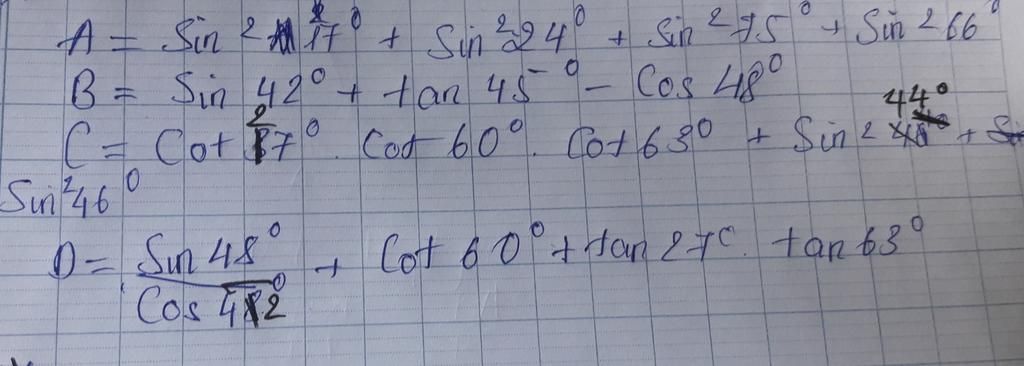 A = Sin² 17° + Sin² 24° + Sin² 75° + Sin² 66°
B = Sin 42° + tan 45° - Cos 48°
C = Cot 27° . Cot 60° . Cot 63° + Sin² 44° +
Sin² 46°
D = Sin 48° / Cos 42° + Cot 60° + tan 27° . tan 63°